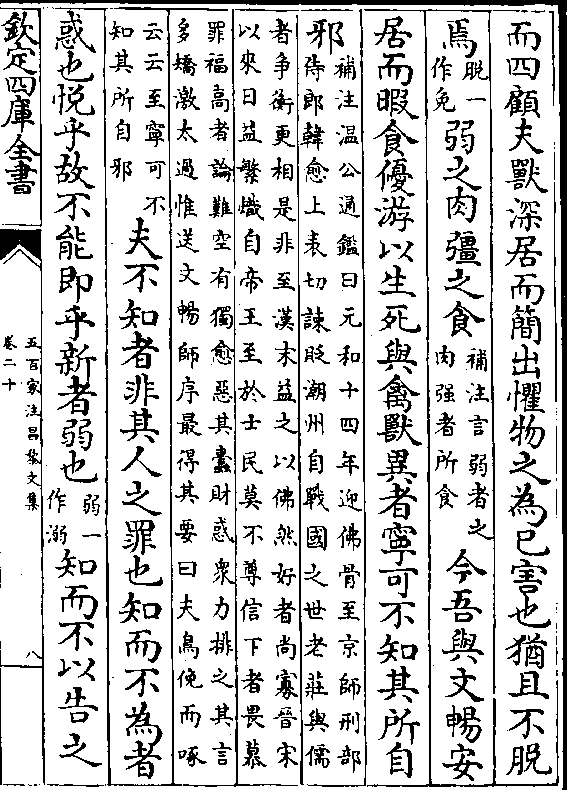 而四顧夫獸深居而簡出懼物之為已害也猶且不脫
焉脫一作免弱之肉彊之食補注言弱者之肉强者所食今吾與文暢安
居而暇食優游以生死與禽獸異者寧可不知其所自
邪補注温公通鑑曰元和十四年迎佛骨至京師刑部
侍郎韓愈上表切諫貶潮州自戰國之世老莊與儒
者争衡更相是非至漢末益之以佛然好者尚寡晉宋
以來日益繁熾自帝王至於士民莫不尊信下者畏慕
罪福高者論難空有獨愈惡其蠧財惑衆力排之其言
多矯激太過惟送文暢師序最得其要曰夫鳥俛而啄
云云至寧可不知其所自邪夫不知者非其人之罪也知而不為者
惑也悅乎故不能即乎新者弱也弱一作溺知而不以告之
欽定四庫全書
五百家注昌黎文集
卷二十
八